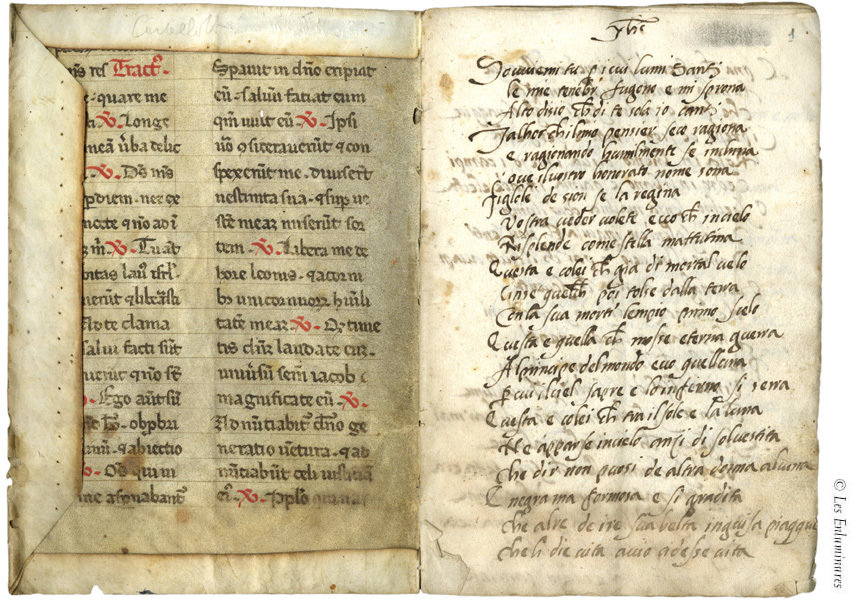 Cartello
ms res Tract⁹.
e. quare me
℣. Longe
mea ūba delic
℣. Ds ms
p diem. nec ex
nocte q̄ no ad i
℣. Tu aūt
bitas laus isrl.
uerūt ⁊ libasti
Ad te clama
salui facti sūt
uerūt ⁊ no sūt
Ego aūt sū
ho. obpbriū
⁊ abiectio
Oēs qui ui
me aspnabant
Spauit in dn̄o eripiat
eū. saluū faciat eum
qm̄ uult eū ℣. Ipsi
uo ꝯsiderauerūt ⁊ con
spexerūt me. diuiserūt
uestimta sua. ⁊ sup ue
stē meaꝫ miserūt sor
tem. ℣. Libera me de
hore leonis. ⁊ a corni
bꝫ unicornuoꝝ humili
tate meaꝫ ℣. Qi time
tis dn̄m laudate eū.
uniūsū semē iacob
magnificate eū. ℣.
Adnūtiabit dn̄o ge
neratio uētura. ⁊ ad
nūtiabūt celi iustitiā
eī. ℣. Pplo qui na
yhs
1
Souuemi tu p cui lumi santi
le mie tenebr fugono e mi sprona
Alto diuo ch di te solo io canti
Talhor chil mio pensier seco ragiona
e ragionando humilmente se inchina
doue il uostro honorato nome sona
Figlole de sion se la regina
Vostra ueder uolete ecco ch in cielo
Risplende come stella mattutina
Questa e colei ch gia di mortal uelo
Cinse quel ch poi tolse dalla terra
Con la sua morti lempio primo scelo
Questa e quella ch mosse eterna guerra
Al principe del mondo ecco quell una
P cui il ciel sapre e lo inferno si serra
Questa e colei ch tra il sole e la luna
Ne apparse in cielo anzi di sol uestita
che dir non puosi de altra donna alcuna
E negra ma formosa e si gradita
che al re de ire sua belta in guisa piacque
che li die uita acio adesse uita
© Les Enluminures